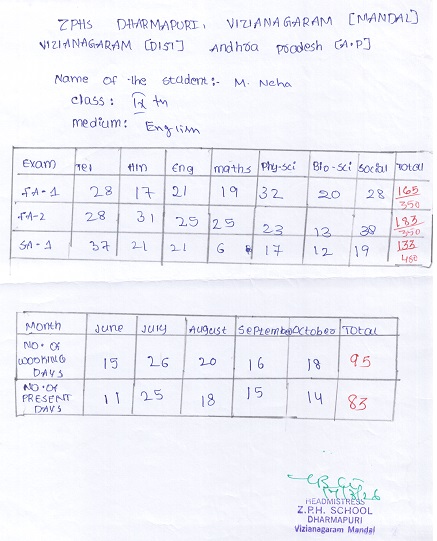 ZPHS DHARMAPURI, VIZIANAGARAM [MANDAL]
VIZIANAGARAM [DIST] Andhra pradesh [A.P]
Name of the student:- M. Neha
class: IX th
medium: English
Exam Tel Hin Eng maths Phy-sci Bio-sci Social Total
FA-1 28 17 21 19 32 20 28 165/350
FA-2 28 31 25 25 23 13 38 183/350
SA-1 37 21 21 6 17 12 19 133/480
Month June July August September October Total
NO. OF WORKING DAYS 15 26 20 16 18 95
NO. OF PRESENT DAYS 11 25 18 15 14 83
HEADMISTRESS
Z.P.H. SCHOOL
DHARMAPURI
Vizianagaram Mandal